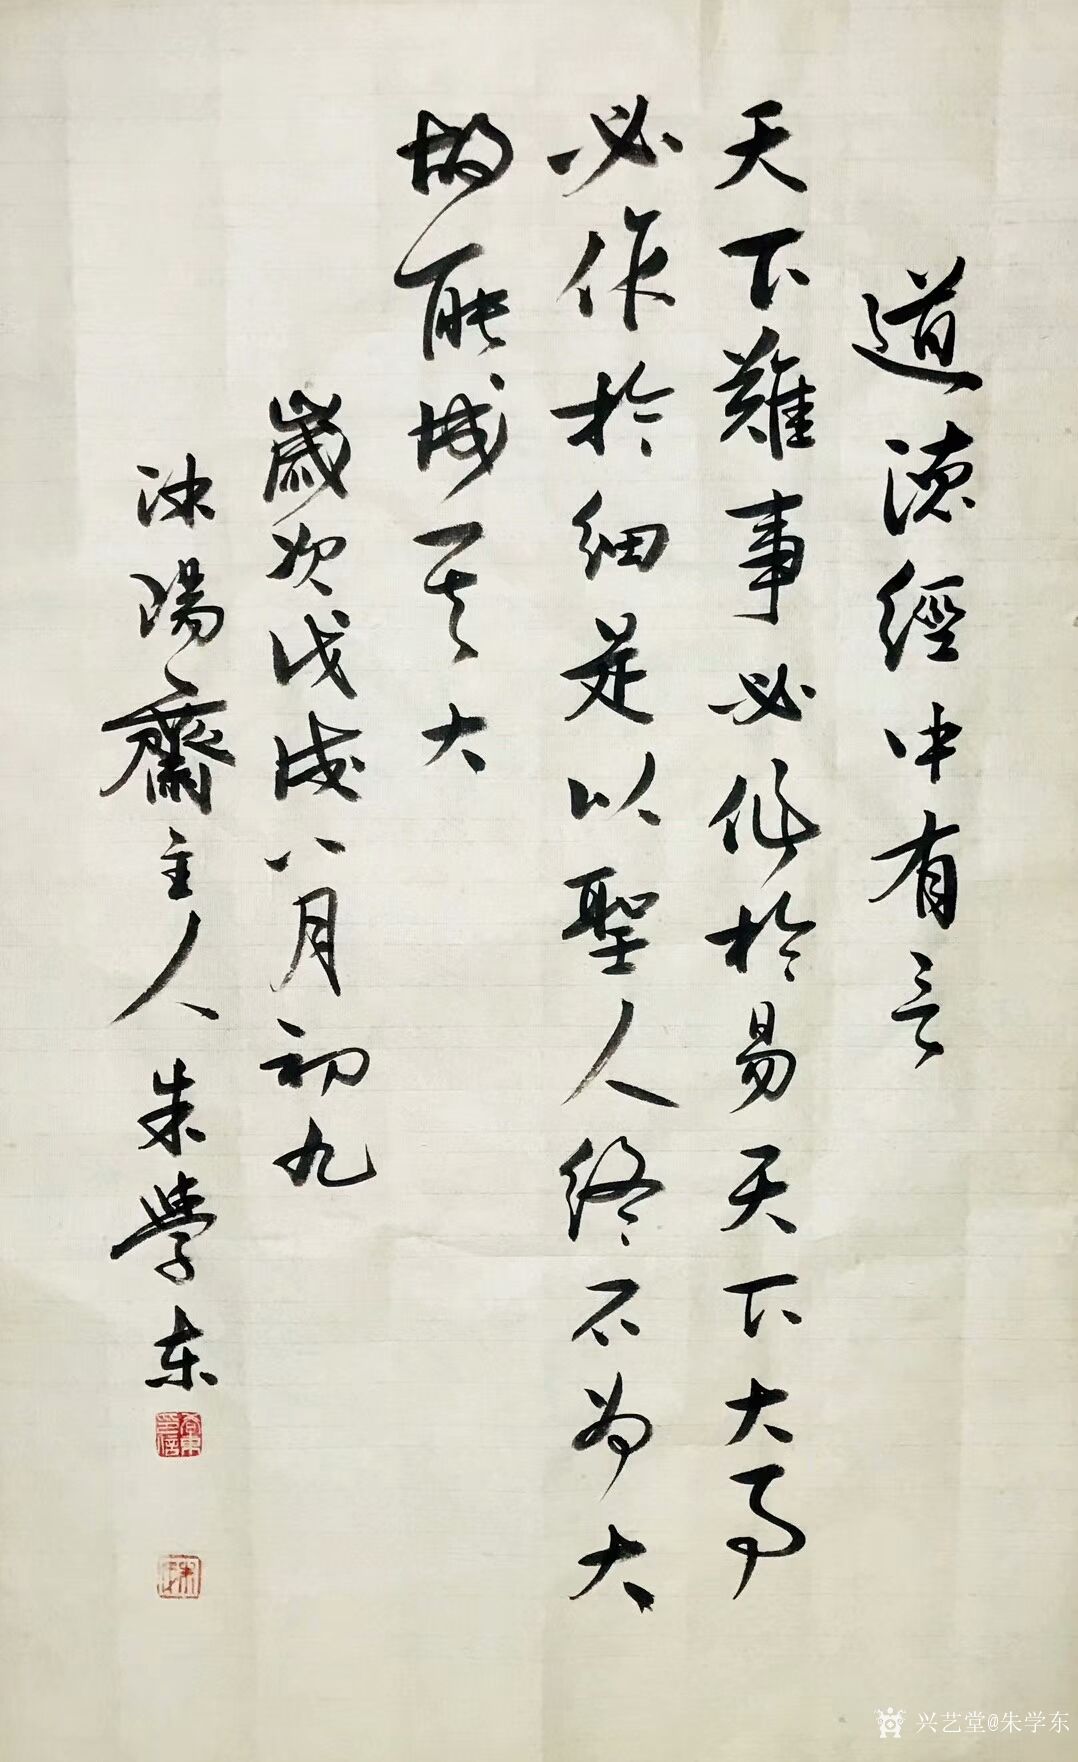 道德經中有言
天下難事必作於易天下大事
必作於細是以聖人終不為大
故能成其大
歲次戊戌八月初九
沐陽齋主人朱學東
兴艺堂@朱学东